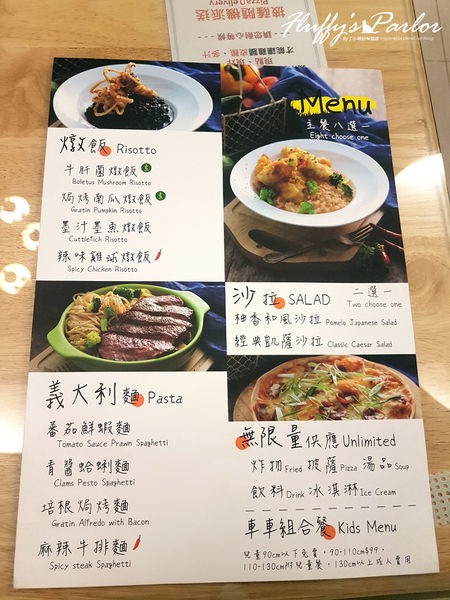 披薩隨機派送
Pizza Delivery
Fluffy's Parlor
Menu
主餐八選一
Eight choose one
燉飯 Risotto
牛肝菌燉飯
Boletus Mushroom Risotto
焗烤南瓜燉飯
Gratin Pumpkin Risotto
墨汁墨魚燉飯
Cuttlefich Risotto
辣味雞球燉飯
Spicy Chicken Risotto
沙拉 SALAD 二選一
Two choose one
柚香和風沙拉 Pomelo Japanese Salad
經典凱薩沙拉 Classic Caesar Salad
義大利麵 Pasta
蕃茄鮮蝦麵
Tomato Sauce Prawn Spaghetti
青醬蛤蜊麵
Clams Pesto Spaghetti
培根焗烤麵
Gratin Alfredo with Bacon
麻辣牛排麵
Spicy steak Spaghetti
無限量供應 Unlimited
炸物 Fried 披薩 Pizza 湯品 Soup
飲料 Drink 冰淇淋 Ice Cream
車車組合餐 Kids Menu
兒童90cm以下免費，90-110cm$99，
110-130cm附兒童餐，130cm以上成人費用